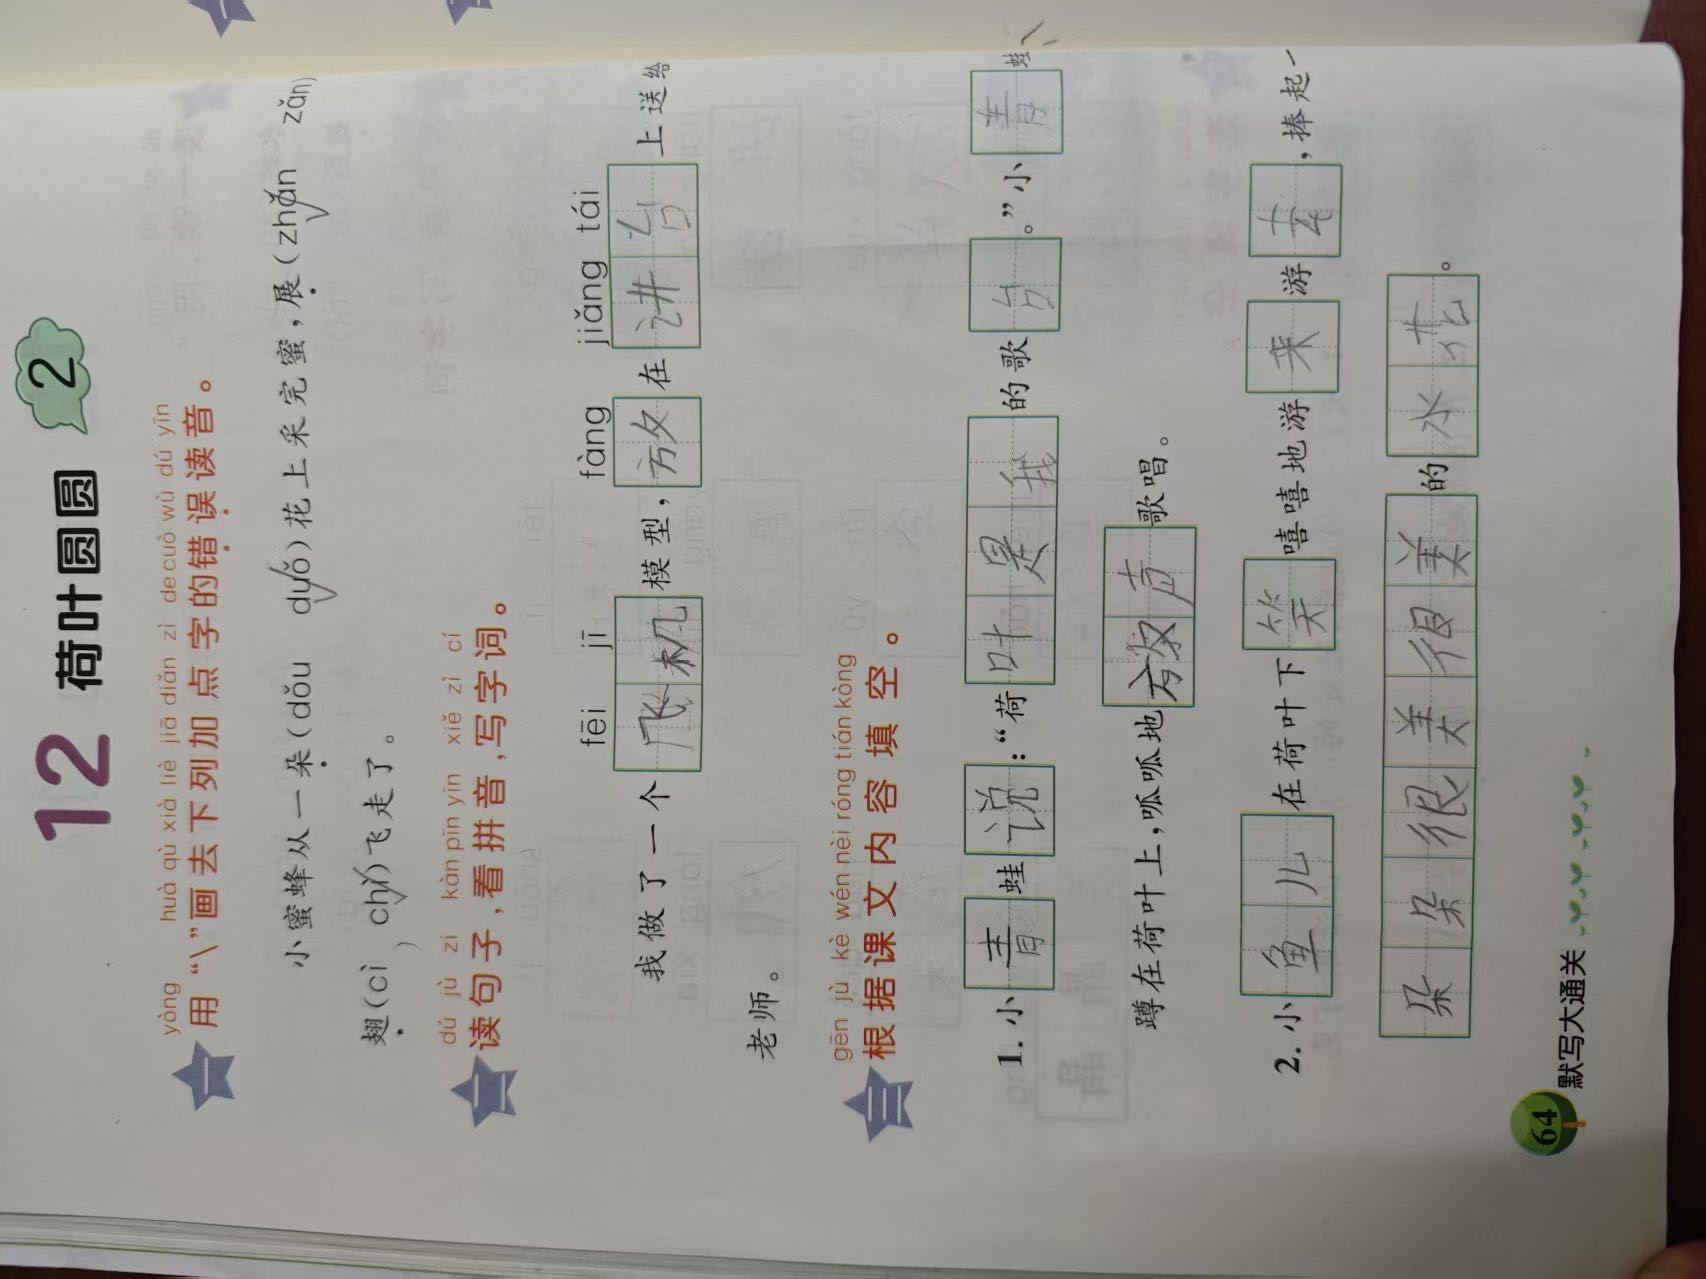 12 荷叶圆圆 2
yòng huà qù xià liè jiā diǎn zì de cuò wù dú yīn
一 用“\”画去下列加点字的错误读音。
小蜜蜂从一朵(dǒu duǒ)花上采完蜜,展(zhǎn zǎn)
翅(cì chì)飞走了。
dú jù zi kàn pīn yīn xiě zì cí
二 读句子,看拼音,写字词。
fēi jī fàng jiǎng tái
我做了一个飞机模型,放在讲台上送给
老师。
gēn jù kè wén nèi róng tián kòng
三 根据课文内容填空。
1. 小青蛙说:“荷叶是我的歌台。”小青蛙
蹲在荷叶上,呱呱地放声歌唱。
2. 小鱼儿在荷叶下笑嘻嘻地游来游去,捧起一
朵朵很美很美的水花。
64 默写大通关